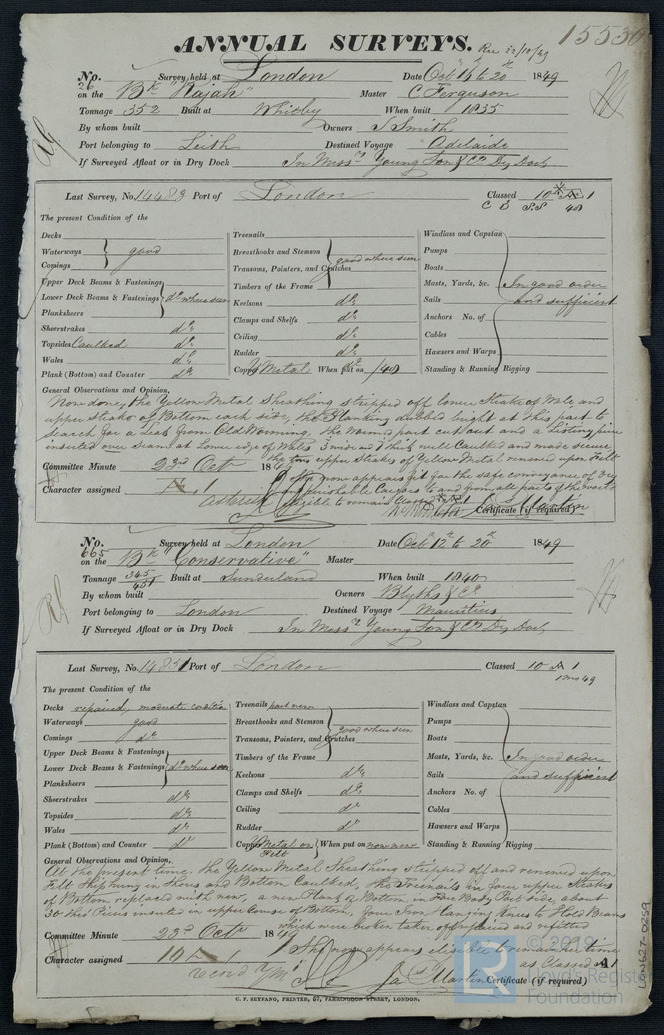 ANNUAL SURVEYS. Rec 22/10/49 15530
No. 26 Survey held at London Date Oct 14 to 20th 1849
on the Bk "Rajah" Master C Ferguson
Tonnage 352 Built at Whitby When built 1835
By whom built Owners J Smith
Port belonging to Leith Destined Voyage Adelaide
If Surveyed Afloat or in Dry Dock In Messrs Young Son & Co Dry Dock
Last Survey, No. 14483 Port of London Classed 10 A 1
C B S.S 48
The present Condition of the
Decks
Waterways good
Comings
Upper Deck Beams & Fastenings
Lower Deck Beams & Fastenings do where seen
Planksheers
Sheerstrakes do
Topsides Caulked do
Wales do
Plank (Bottom) and Counter do
Treenails
Breasthooks and Stemson
Transoms, Pointers, and Crutches good where seen
Timbers of the Frame
Keelsons do
Clamps and Shelfs do
Ceiling do
Rudder do
Copper Y Metal When put on /48
Windlass and Capstan
Pumps
Boats
Masts, Yards, &c. In good order
Sails and sufficient
Anchors No. of
Cables
Hawsers and Warps
Standing & Running Rigging
General Observations and Opinion,
Now done, the Yellow Metal Sheathing stripped off lower Strake of Wale and
upper Strake of Bottom each side, the Planking dubbed bright at this part to
search for a Leak from Old Worming, the wormed part cut out and a listing piece
inserted over Seam at Lower edge of Wales 3 wide and 3 thick, well Caulked and made secure
the two upper Strakes of Yellow Metal renewed upon Felt
Committee Minute 22nd Octr 1849
She now appears fit for the safe conveyance of dry
and perishable Cargoes to and from all parts of the world
Character assigned A 1
eligible to remain Classed A 1
Asterisk
Certificate (if required) J. Martin
No. 665 Survey held at London Date Oct 12 to 20th 1849
on the Bk "Conservative" Master
Tonnage 345 451 Built at Sunderland When built 1840
By whom built Owners Blyths & Co
Port belonging to London Destined Voyage Mauritius
If Surveyed Afloat or in Dry Dock In Messrs Young Son & Co Dry Dock
Last Survey, No. 14851 Port of London Classed 10 A 1
12mo 49
The present Condition of the
Decks repaired, moderate condition
Waterways good
Comings do
Upper Deck Beams & Fastenings
Lower Deck Beams & Fastenings do where seen
Planksheers
Sheerstrakes do
Topsides do
Wales do
Plank (Bottom) and Counter do
Treenails part new
Breasthooks and Stemson
Transoms, Pointers, and Crutches good where seen
Timbers of the Frame
Keelsons do
Clamps and Shelfs do
Ceiling do
Rudder do
Copper Y Metal on Felt When put on now new
Windlass and Capstan
Pumps
Boats
Masts, Yards, &c. In good order
Sails and sufficient
Anchors No. of
Cables
Hawsers and Warps
Standing & Running Rigging
General Observations and Opinion,
At the present time, the Yellow Metal Sheathing stripped off and renewed upon
Felt Ship hung in Shores and Bottom Caulked, the Treenails in four upper Strakes
of Bottom replaced with new, a new Plank of Bottom in Fore Body Port side, about
30 thin Pieces inserted in upper Course of Bottom, four Iron Hanging Knees to Hold Beams
which were broken taken off repaired and refitted
Committee Minute 22nd Octr 1849
She now appears eligible to remain a time
Character assigned 10 A 1
as Classed A 1
Jas Martin Certificate (if required)
C. F. SEYFANG, PRINTER, 57, FARRINGDON STREET, LONDON.
© 2019
Lloyd's Register
Foundation
LON627-0259